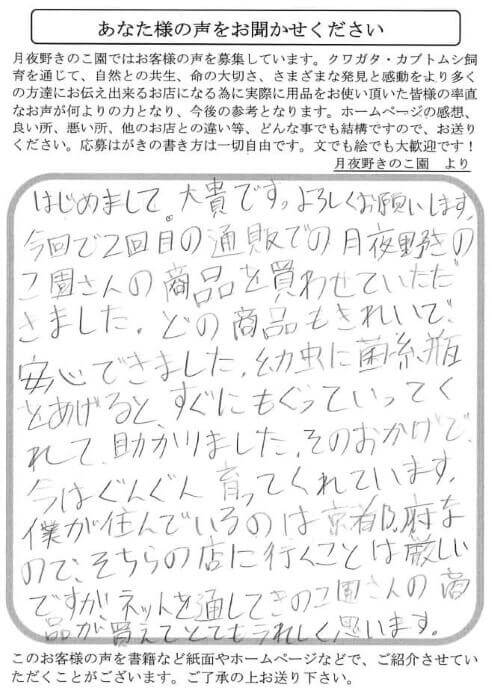 あなた様の声をお聞かせください
月夜野きのこ園ではお客様の声を募集しています。クワガタ・カブトムシ飼
育を通じて、自然との共生、命の大切さ、さまざまな発見と感動をより多く
の方達にお伝え出来るお店になる為に実際に用品をお使い頂いた皆様の率直
なお声が何よりの力となり、今後の参考となります。ホームページの感想、
良い所、悪い所、他のお店との違い等、どんな事でも結構ですので、お送り
ください。応募はがきの書き方は一切自由です。文でも絵でも大歓迎です！
月夜野きのこ園　より
はじめまして。大貴です。よろしくお願いします。
今回で2回目の通販での月夜野きの
こ園さんの商品を買わせていただ
きました。どの商品もきれいで、
安心できました。幼虫に菌糸瓶
をあげると、すぐにもぐっていってく
れて、助かりました。そのおかげで、
今はぐんぐん育ってくれています。
僕が住んでいるのは京都府な
ので、そちらの店に行くことは厳しい
ですが、ネットを通してきのこ園さんの商
品が買えてとてもうれしく思います。
このお客様の声を書籍など紙面やホームページなどで、ご紹介させてい
ただくことがございます。ご了承の上お送り下さい。